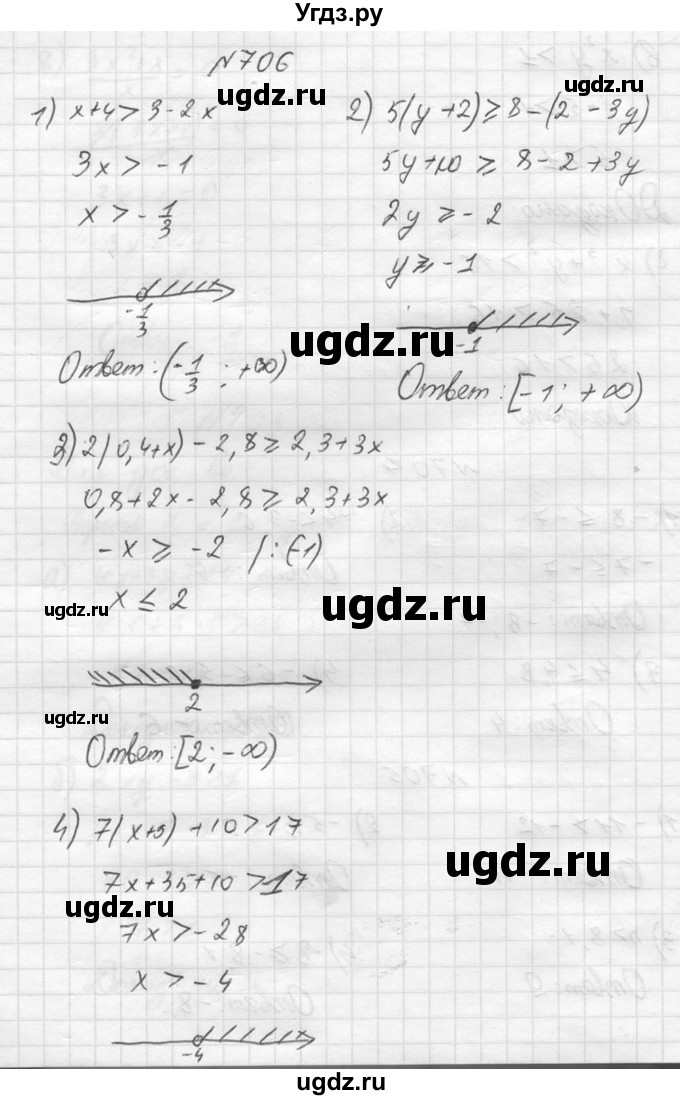 Угдз.ру
N706
1) x+4>3-2x
3x > -1
x > -1/3
-1/3
Ответ: (-1/3 ; +∞)
2) 5(y+2)≥8-(2-3y)
5y+10 ≥ 8-2+3y
2y ≥ -2
y ≥ -1
-1
Ответ: [-1; +∞)
3) 2(0,4+x)-2,8≥2,3+3x
0,8+2x-2,8≥2,3+3x
-x ≥ -2 /:(-1)
x ≤ 2
2
Ответ: [2; -∞)
4) 7(x+5)+10>17
7x+35+10>17
7x>-28
x > -4
-4
ugdz.ru
ugdz.ru
ugdz.ru
ugdz.ru
ugdz.ru
ugdz.ru
ugdz.ru
ugdz.ru